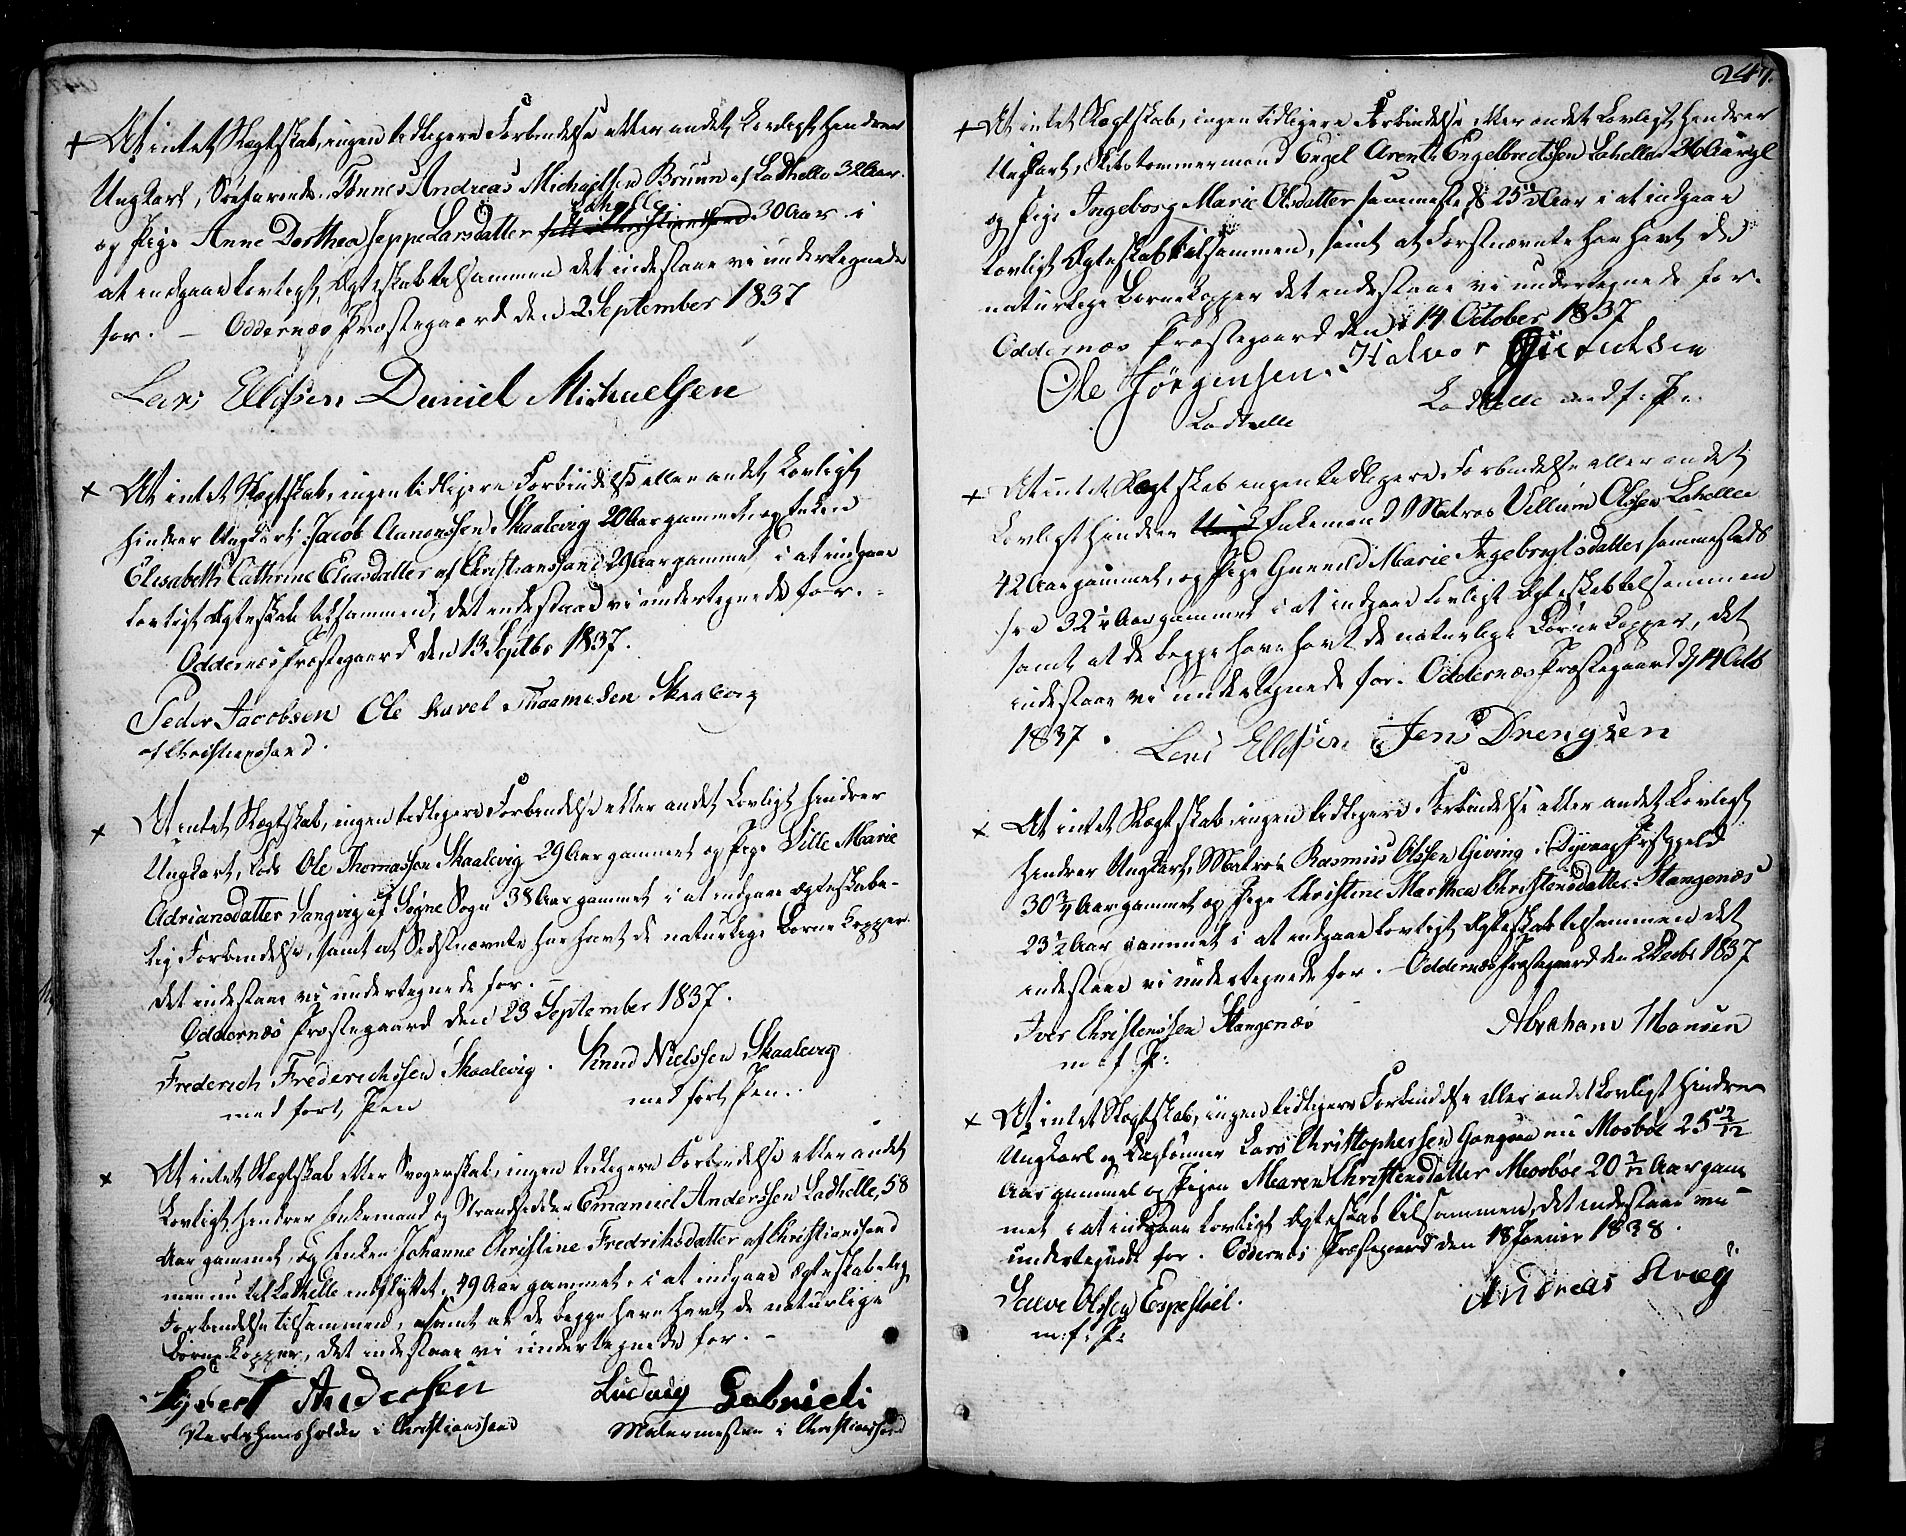 + At intet Slægtskab, ingen tidligere Forbindelse eller andet Lovligt hindrer
Ungkarl, Søefarende, Tønnes Andreas Michaelsen Bruun af Ladhelle 32 Aar.
Lahelle
og Pige Anne Dorthea Seppe Larsdatter 30 Aar i
at indgaae Lovligt Ægteskab tilsammen det indestaae vi undertegnede
for. – Oddernæs Præstegaard den 2 September 1837
Lars Ellefsen Daniel Michaelsen
+ At intet Slægtskab, ingen tidligere Forbindelse eller andet Lovligt
hindrer Ungkarl Jacob Aanonsen Skaalevig 20 Aar gammel, og Enken
Elisabeth Cathrine Eliasdatter af Christianssand 29 Aar gammel i at indgaae
lovligt Ægteskab tilsammen, det indestaae vi undertegnede for. –
Oddernæs Præstegaard den 13 Septbr 1837.
Peder Jacobsen Ole Ravel Thaamesen Skaalevig
af Christianssand.
+ At intet Slægtskab, ingen tidligere Forbindelse eller andet Lovligt hindrer
Ungkarl, Lods Ole Thomassen Skaalevig 29 Aar gammel og Pige Sille Marie
Adriansdatter Langvig af Søgne Sogn 38 Aar gammel i at indgaae ægteskabe-
lig Forbindelse, samt at Sidstnævnte har havt de naturlige Børnekopper
det indestaae vi undertegnede for. –
Oddernæs Præstegaard den 23 September 1837.
Frederich Frederichsen Skaalevig. Knud Nielssen Skaalevig
med ført Pen med ført Pen.
+ At intet Slægtskab eller Svogerskab, ingen tidligere Forbindelse eller andet
Lovligt hindrer Enkemand og Strandsidder Emanuel Anderssen Ladhelle, 58
Aar gammel, og Enken Johanne Christine Fredriksdatter af Christianssand
men nu til Ladhelle indflyttet, 49 Aar gammel, i at indgaae Ægteskabelig
Forbindelse tilsammen, samt at de begge have havt de naturlige
Børnekopper, det indestaae vi undertegnede for. –
Andersen Ludvig Gabrieli
Værtshuusholder i Christianssand Malermester i Christianssand
247.
+ At intet Slægtskab, ingen tidligere Forbindelse eller andet Lovligt hindrer
Ungkarl, Skibstømmermand Engel Arent Engelbredtssen Lahelle 26 Aar gl
og Pige Ingeborg Marie Olsdatter sammesteds 25 1/2 Aar i at indgaae
Lovligt Ægteskab tilsammen, samt at Førstnævnte har havt de
naturlige Børnekopper det indestaae vi undertegnede for.
Oddernæs Præstegaard den 14 October 1837
Ole Jørgensen. Halvor
Ladhelle Ladhelle med f. P.
+ At intet Slægtskab ingen tidligere Forbindelse eller andet
Lovligt hindrer Enkemand Matros Villum Olssen Lahelle
42 Aar gammel, og Pige Gunnild Marie Ingebregtsdatter sammesteds
fra 32 1/2 Aar gammel i at indgaae lovligt Ægteskab tilsammen
samt at de begge have havt de naturlige Børnekopper, det
indestaae vi undertegnede for. Oddernæs Præstegaard d 14 Octb
1837. Lars Ellefsen Jens Drengsen
+ At intet Slægtskab, ingen tidligere Forbindelse eller andet Lovligt
hindrer Ungkarl, Matros Rasmus Olssen Giving i Dyvaag Præstegjeld
30 3/4 Aar gammel og Pige Christine Marthea Christensdatter Stangenæs
23 1/2 Aar gammel i at indgaae Lovligt Ægteskab tilsammen det
indestaae vi undertegnede for. – Oddernæs Præstegaard den 2 Decbr 1837
Iver Christenssen Stangenæs Abraham Hansen
m: f: P:
+ At intet Slægtskab, ingen tidligere Forbindelse eller andet Lovligt hindrer
Ungkarl og Lars Christophersen nu Mosbøe 25 /12
Aar gammel og Pigen Maren Christensdatter Mosbøe 20 /12 Aar gam
mel i at indgaae Lovligt Ægteskab tilsammen, det indestaae vi
undertegnede for. Oddernæs Præstegaard den 18 Januar 1838.
Salve Olssen Espestøl. Andreas
m: f: P: